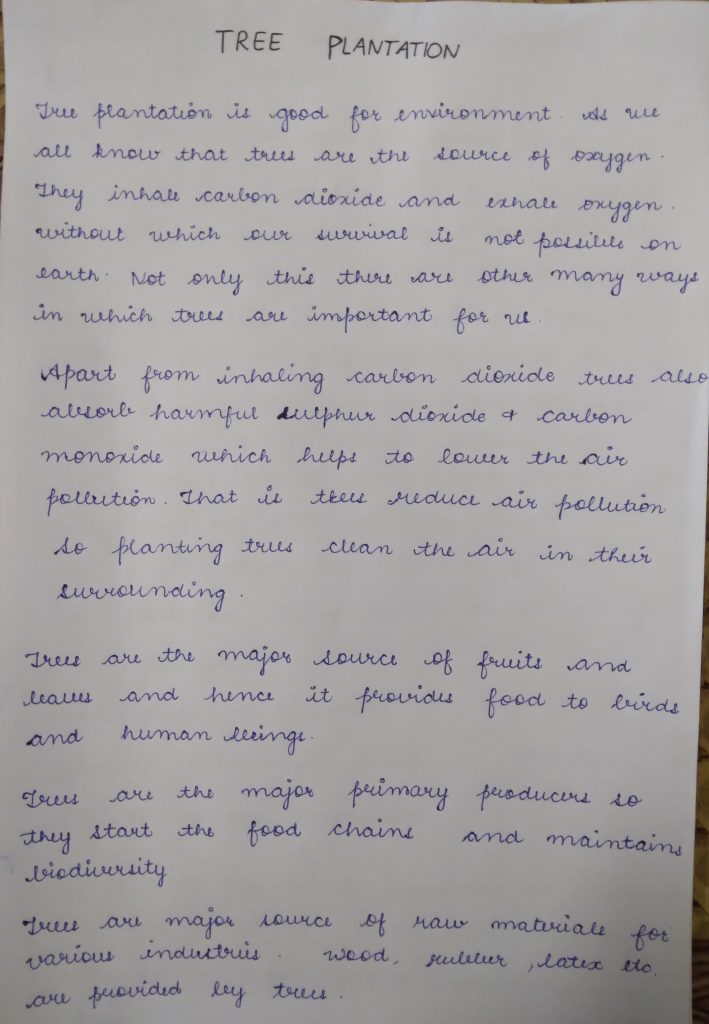 TREE PLANTATION
Tree plantation is good for environment. As we
all know that trees are the source of oxygen.
They inhale carbon dioxide and exhale oxygen.
without which our survival is not possible on
earth. Not only this there are other many ways
in which trees are important for us.
Apart from inhaling carbon dioxide trees also
absorb harmful sulphur dioxide & carbon
monoxide which helps to lower the air
pollution. That is trees reduce air pollution
so planting trees clean the air in their
surrounding.
Trees are the major source of fruits and
leaves and hence it provides food to birds
and human beings.
Trees are the major primary producers so
they start the food chains and maintains
biodiversity
Trees are major source of raw materials for
various industries. wood, rubber, latex etc.
are provided by trees.